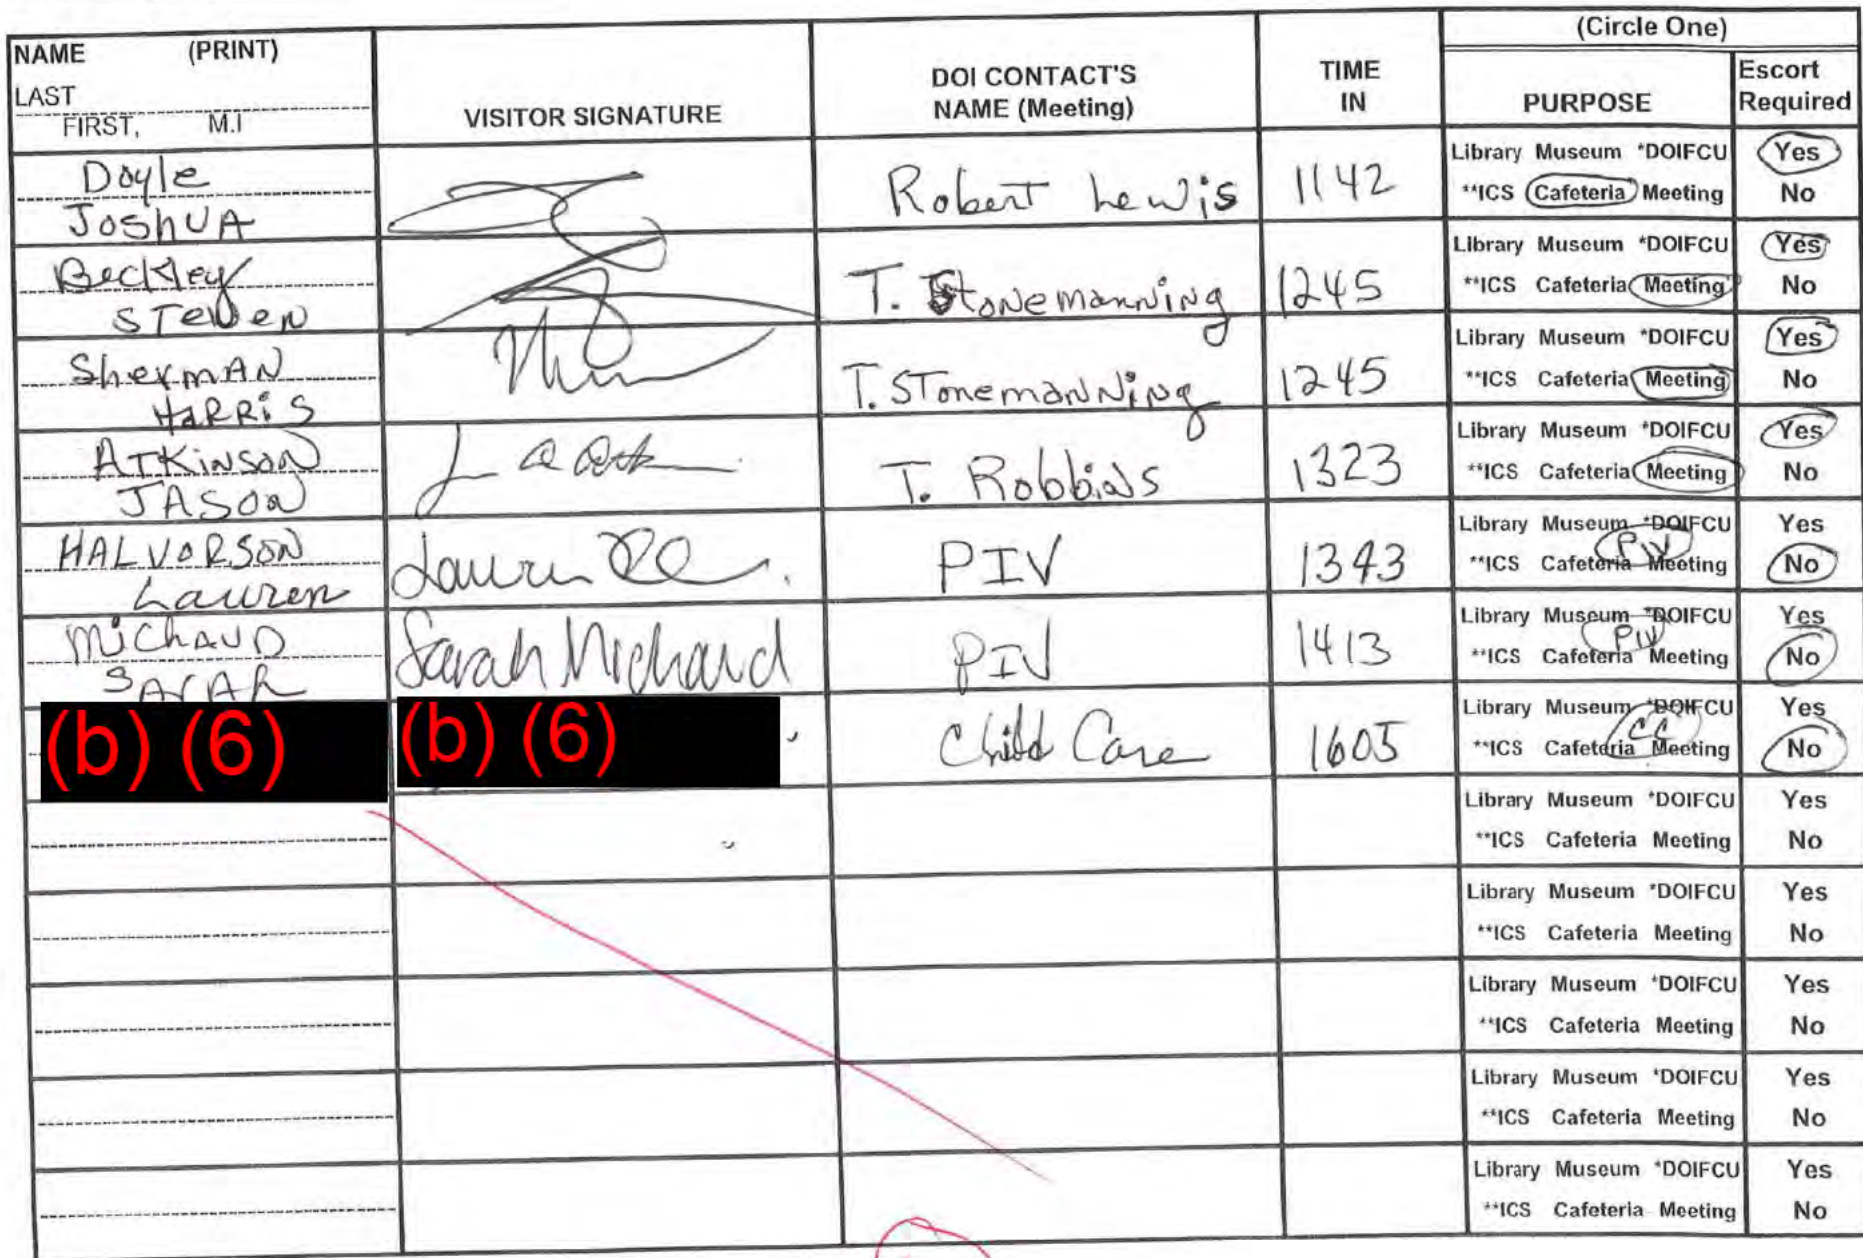 (Circle One)
NAME (PRINT)
LAST
FIRST, M.I
VISITOR SIGNATURE
DOI CONTACT'S
NAME (Meeting)
TIME
IN
PURPOSE
Escort
Required
Doyle
JOSHUA
Robert Lewis
1142
Library Museum *DOIFCU Yes
**ICS Cafeteria Meeting No
Beckley
STEVEN
T. Stonemanning
1245
Library Museum *DOIFCU Yes
**ICS Cafeteria Meeting No
SherMAN
HARRIS
T. STonemanning
1245
Library Museum *DOIFCU Yes
**ICS Cafeteria Meeting No
ATKINSON
JASON
T. Robbins
1323
Library Museum *DOIFCU Yes
**ICS Cafeteria Meeting No
HALVORSON
Lauren
Lauren
PIV
1343
Library Museum *DOIFCU Yes
PIV
**ICS Cafeteria Meeting No
MICHAUD
SARAH
Sarah Michaud
PIV
1413
Library Museum *DOIFCU Yes
PIV
**ICS Cafeteria Meeting No
(b) (6)
(b) (6)
Child Care
1605
Library Museum *DOIFCU Yes
CC
**ICS Cafeteria Meeting No
Library Museum *DOIFCU Yes
**ICS Cafeteria Meeting No
Library Museum *DOIFCU Yes
**ICS Cafeteria Meeting No
Library Museum *DOIFCU Yes
**ICS Cafeteria Meeting No
Library Museum *DOIFCU Yes
**ICS Cafeteria Meeting No
Library Museum *DOIFCU Yes
**ICS Cafeteria Meeting No